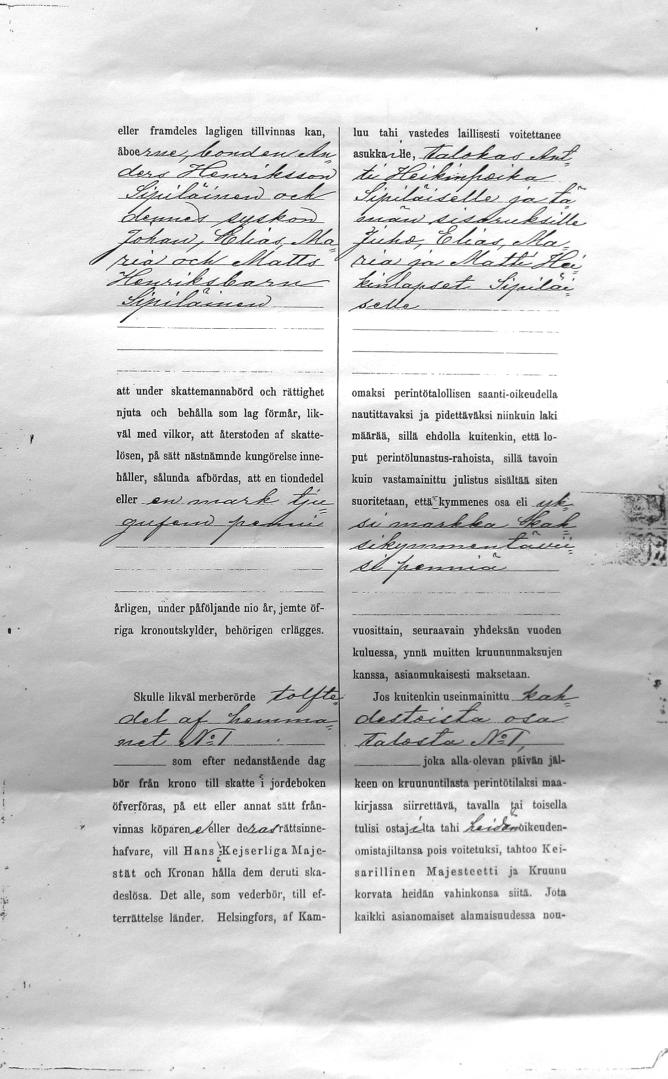 eller framdeles lagligen tillvinnas kan,
åboerne, bonden An=
ders Henriksson
Sipiläinen och
dennes syskon
Johan, Elias, Ma=
ria och Matts
Henriksbarn
Sipiläinen
att under skattemannabörd och rättighet
njuta och behålla som lag förmår, lik-
väl med vilkor, att återstoden af skatte-
lösen, på sätt nästnämnde kungörelse inne-
håller, sålunda afbördas, att en tiondedel
eller en mark tju=
gufem penni
årligen, under påföljande nio år, jemte öf-
riga kronoutskylder, behörigen erlägges.
Skulle likväl merberörde tolfte=
del af hemma=
net No 1
som efter nedanstående dag
bör från krono till skatte i jordeboken
öfverföras, på ett eller annat sätt från-
vinnas köparene eller deras rättsinne-
hafvare, vill Hans Kejserliga Maje-
stät och Kronan hålla dem deruti ska-
deslösa. Det alle, som vederbör, till ef-
terrättelse länder. Helsingfors, af Kam-
luu tahi vastedes laillisesti voitettanee
asukkaille, talokas Ant=
ti Heikinpoika
Sipiläiselle ja tä=
män sisaruksille
Juho, Elias, Ma=
ria ja Matti Hei=
kinlapset Sipiläi=
selle
omaksi perintötalollisen saanti-oikeudella
nautittavaksi ja pidettäväksi niinkuin laki
määrää, sillä ehdolla kuitenkin, että lo-
put perintölunastus-rahoista, sillä tavoin
kuin vastamainittu julistus sisältää siten
suoritetaan, että kymmenes osa eli yk=
si markka kak=
sikymmentävii=
si penniä
vuosittain, seuraavain yhdeksän vuoden
kuluessa, ynnä muitten kruununmaksujen
kanssa, asianomukaisesti maksetaan.
Jos kuitenkin useinmainittu kah=
destoista osa
talosta No 1,
joka alla-olevan päivän jäl-
keen on kruununtilasta perintötilaksi maa-
kirjassa siirrettävä, tavalla tai toisella
tulisi ostajilta tahi heidän oikeuden-
omistajiltansa pois voitetuksi, tahtoo Kei-
sarillinen Majesteetti ja Kruunu
korvata heidän vahinkonsa siitä. Jota
kaikki asianomaiset alamaisuudessa nou-